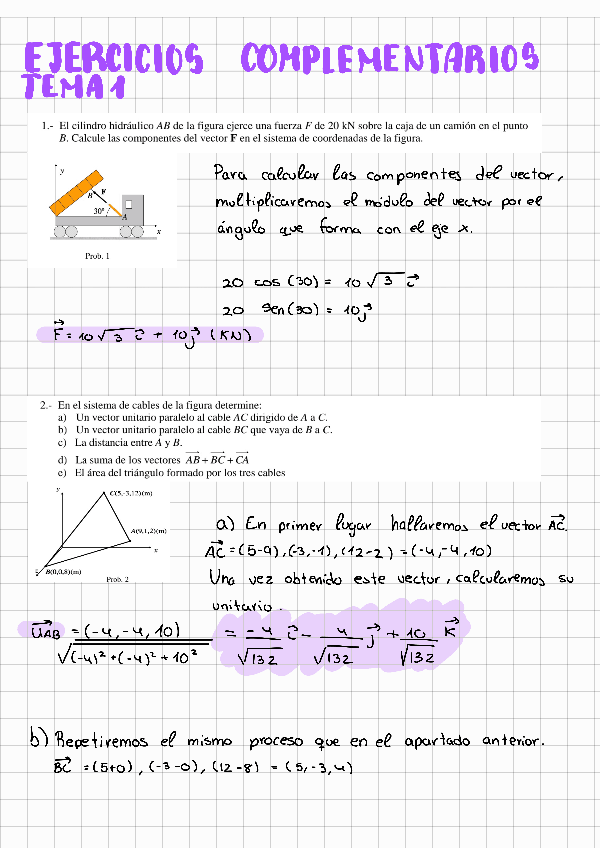 EJERCICIOS COMPLEMENTARIOS
TEMA 1
1.- El cilindro hidráulico AB de la figura ejerce una fuerza F de 20 kN sobre la caja de un camión en el punto
B. Calcule las componentes del vector F en el sistema de coordenadas de la figura.
y
B
F
30°
A
x
Prob. 1
Para calcular las componentes del vector,
multiplicaremos el módulo del vector por el
ángulo que forma con el eje x.
20 cos (30) = 10 √3 i⃗
20 sen (30) = 10 j⃗
F⃗ = 10 √3 i⃗ + 10 j⃗ (KN)
2.- En el sistema de cables de la figura determine:
a) Un vector unitario paralelo al cable AC dirigido de A a C.
b) Un vector unitario paralelo al cable BC que vaya de B a C.
c) La distancia entre A y B.
d) La suma de los vectores AB⃗ + BC⃗ + CA⃗
e) El área del triángulo formado por los tres cables
y
C(5,-3,12)(m)
A(9,1,2)(m)
x
B(0,0,8)(m)
Prob. 2
a) En primer lugar hallaremos el vector AC⃗.
AC⃗ = (5-9), (-3,-1), (12-2) = (-4,-4, 10)
Una vez obtenido este vector, calcularemos su
unitario.
U⃗AB = (-4, -4, 10) / √(-4)² + (-4)² + 10² = -4/√132 i⃗ - 4/√132 j⃗ + 10/√132 k⃗
b) Repetiremos el mismo proceso que en el apartado anterior.
BC⃗ = (5+0), (-3-0), (12-8) = (5,-3,4)